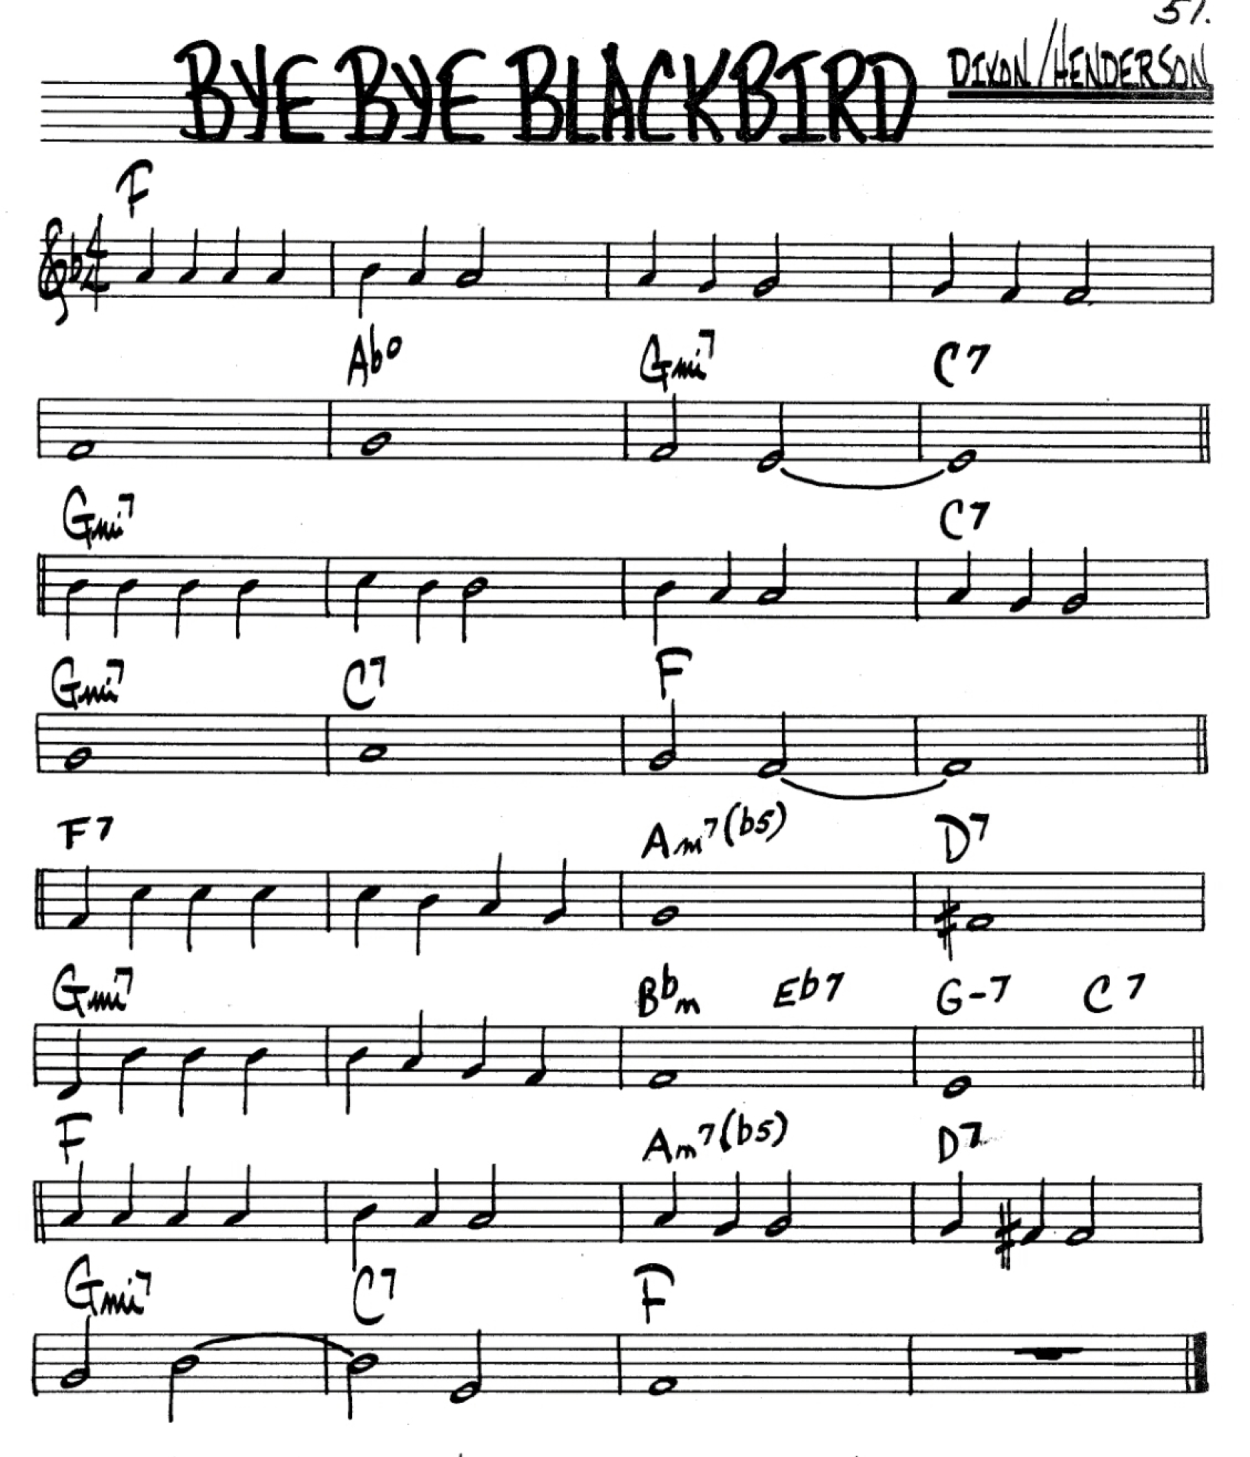 51.
BYE BYE BLACKBIRD DIXON/HENDERSON
F
4
4
Ab° Gmi7 C7
Gmi7 C7
Gmi7 C7 F
F7 Am7(b5) D7
Gmi7 Bbm Eb7 G-7 C7
F Am7(b5) D7
Gmi7 C7 F